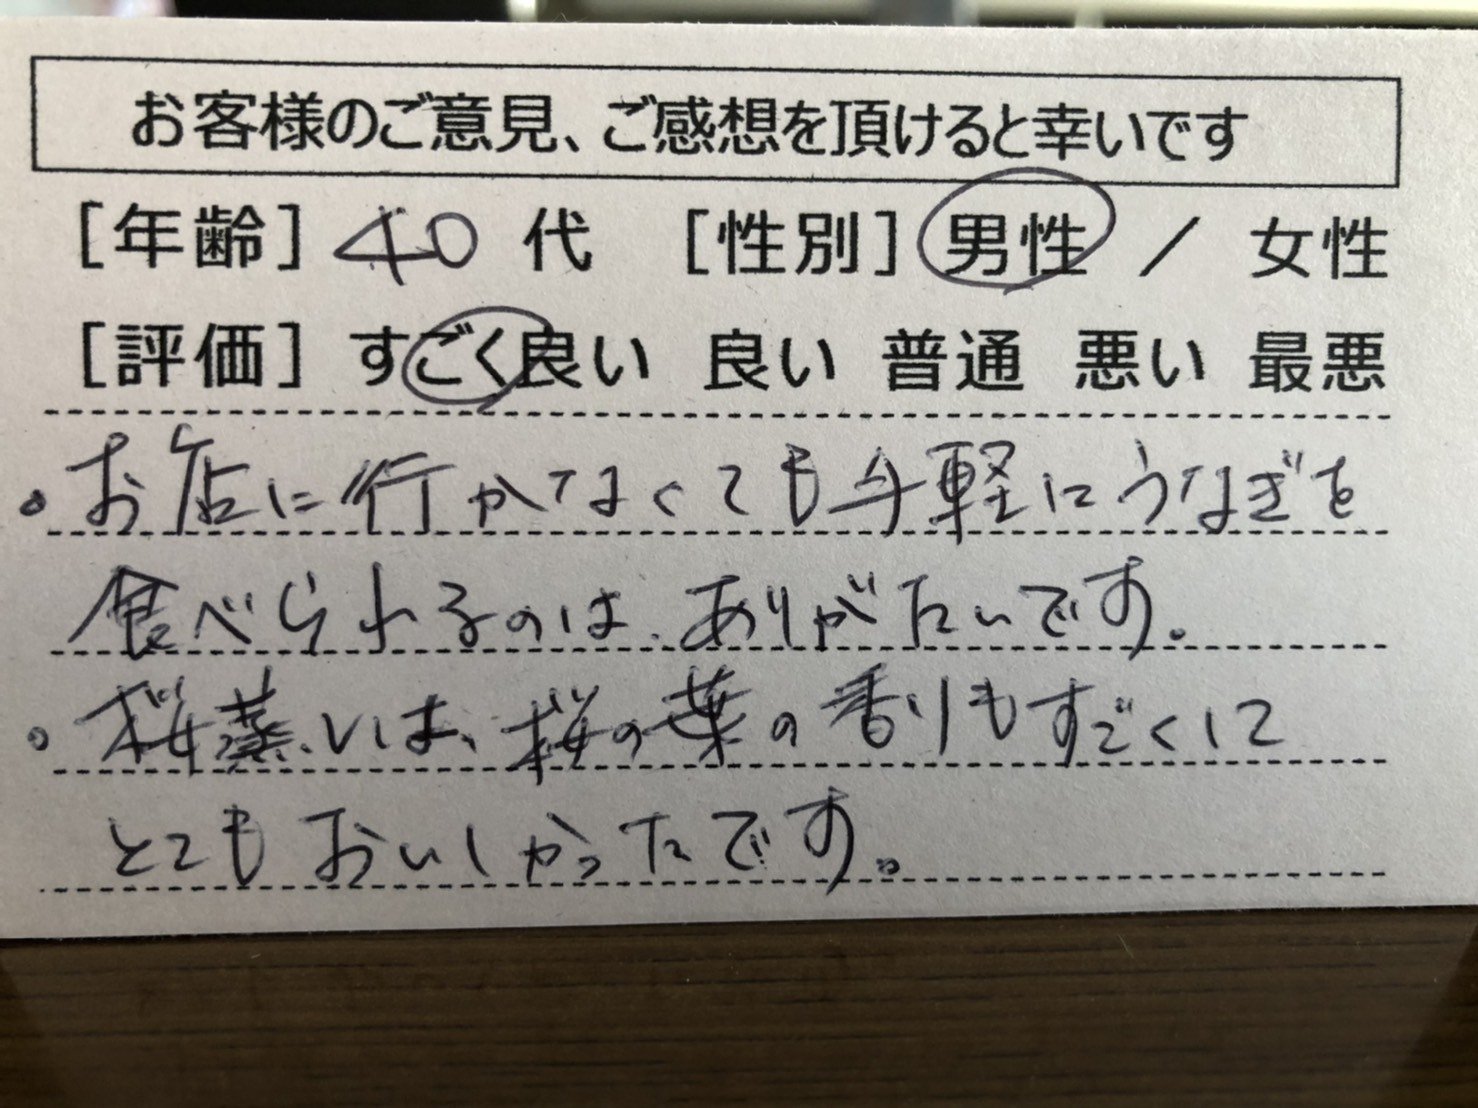 お客様のご意見、ご感想を頂けると幸いです
[年齢] 40 代 [性別] 男性 / 女性
[評価] すごく良い 良い 普通 悪い 最悪
・お店に行かなくても手軽にうなぎを
食べられるのは、ありがたいです。
・桜蒸しは、桜の葉の香りもすごくして
とてもおいしかったです。